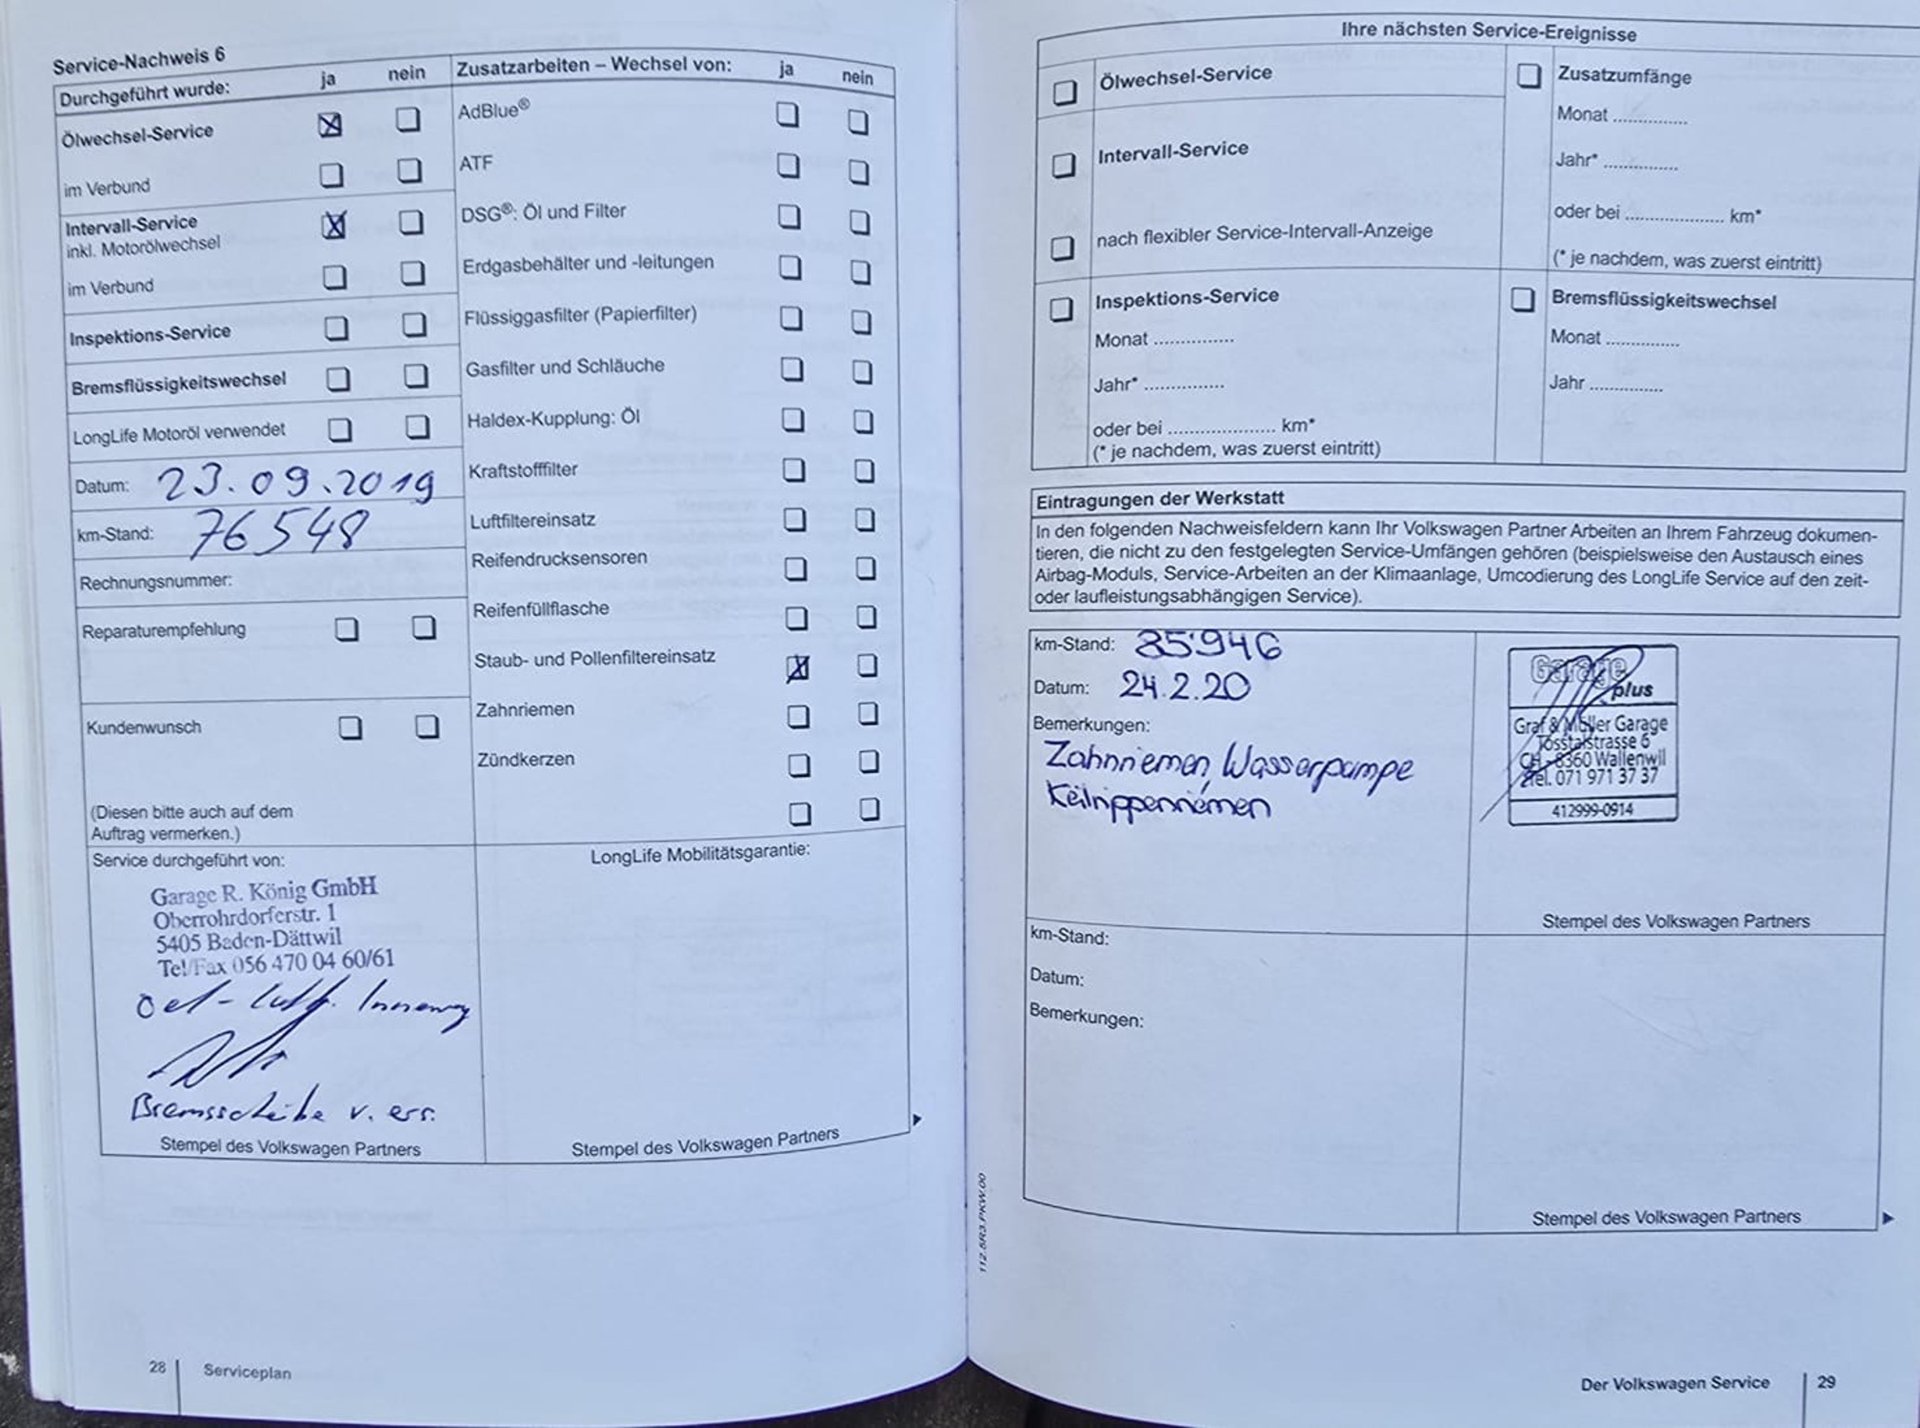 Service-Nachweis 6
Durchgeführt wurde: ja nein
Ölwechsel-Service
im Verbund
Intervall-Service
inkl. Motorölwechsel
im Verbund
Inspektions-Service
Bremsflüssigkeitswechsel
LongLife Motoröl verwendet
Datum: 23.09.2019
km-Stand: 76548
Rechnungsnummer:
Reparaturempfehlung
Kundenwunsch
(Diesen bitte auch auf dem
Auftrag vermerken.)
Zusatzarbeiten – Wechsel von: ja nein
AdBlue®
ATF
DSG®: Öl und Filter
Erdgasbehälter und -leitungen
Flüssiggasfilter (Papierfilter)
Gasfilter und Schläuche
Haldex-Kupplung: Öl
Kraftstofffilter
Luftfiltereinsatz
Reifendrucksensoren
Reifenfüllflasche
Staub- und Pollenfiltereinsatz
Zahnriemen
Zündkerzen
Service durchgeführt von:
Garage R. König GmbH
Oberrohrdorferstr. 1
5405 Baden-Dättwil
Tel/Fax 056 470 04 60/61
Oel - Luft
Bremsscheibe v. ers.
Stempel des Volkswagen Partners
LongLife Mobilitätsgarantie:
Stempel des Volkswagen Partners
28 Serviceplan
Ihre nächsten Service-Ereignisse
Ölwechsel-Service
Intervall-Service
nach flexibler Service-Intervall-Anzeige
Inspektions-Service
Monat ..............
Jahr* ..............
oder bei ................... km*
(* je nachdem, was zuerst eintritt)
Zusatzumfänge
Monat .............
Jahr* .............
oder bei ................. km*
(* je nachdem, was zuerst eintritt)
Bremsflüssigkeitswechsel
Monat .............
Jahr .............
Eintragungen der Werkstatt
In den folgenden Nachweisfeldern kann Ihr Volkswagen Partner Arbeiten an Ihrem Fahrzeug dokumen-
tieren, die nicht zu den festgelegten Service-Umfängen gehören (beispielsweise den Austausch eines
Airbag-Moduls, Service-Arbeiten an der Klimaanlage, Umcodierung des LongLife Service auf den zeit-
oder laufleistungsabhängigen Service).
km-Stand: 85'946
Datum: 24.2.20
Bemerkungen:
Zahnriemen, Wasserpumpe
Keilrippenriemen
Garage
plus
Graf & Müller Garage
Tösstalstrasse 6
CH - 8360 Wallenwil
Tel. 071 971 37 37
412999-0914
Stempel des Volkswagen Partners
km-Stand:
Datum:
Bemerkungen:
Stempel des Volkswagen Partners
112.5R3.PKW.00
Der Volkswagen Service 29